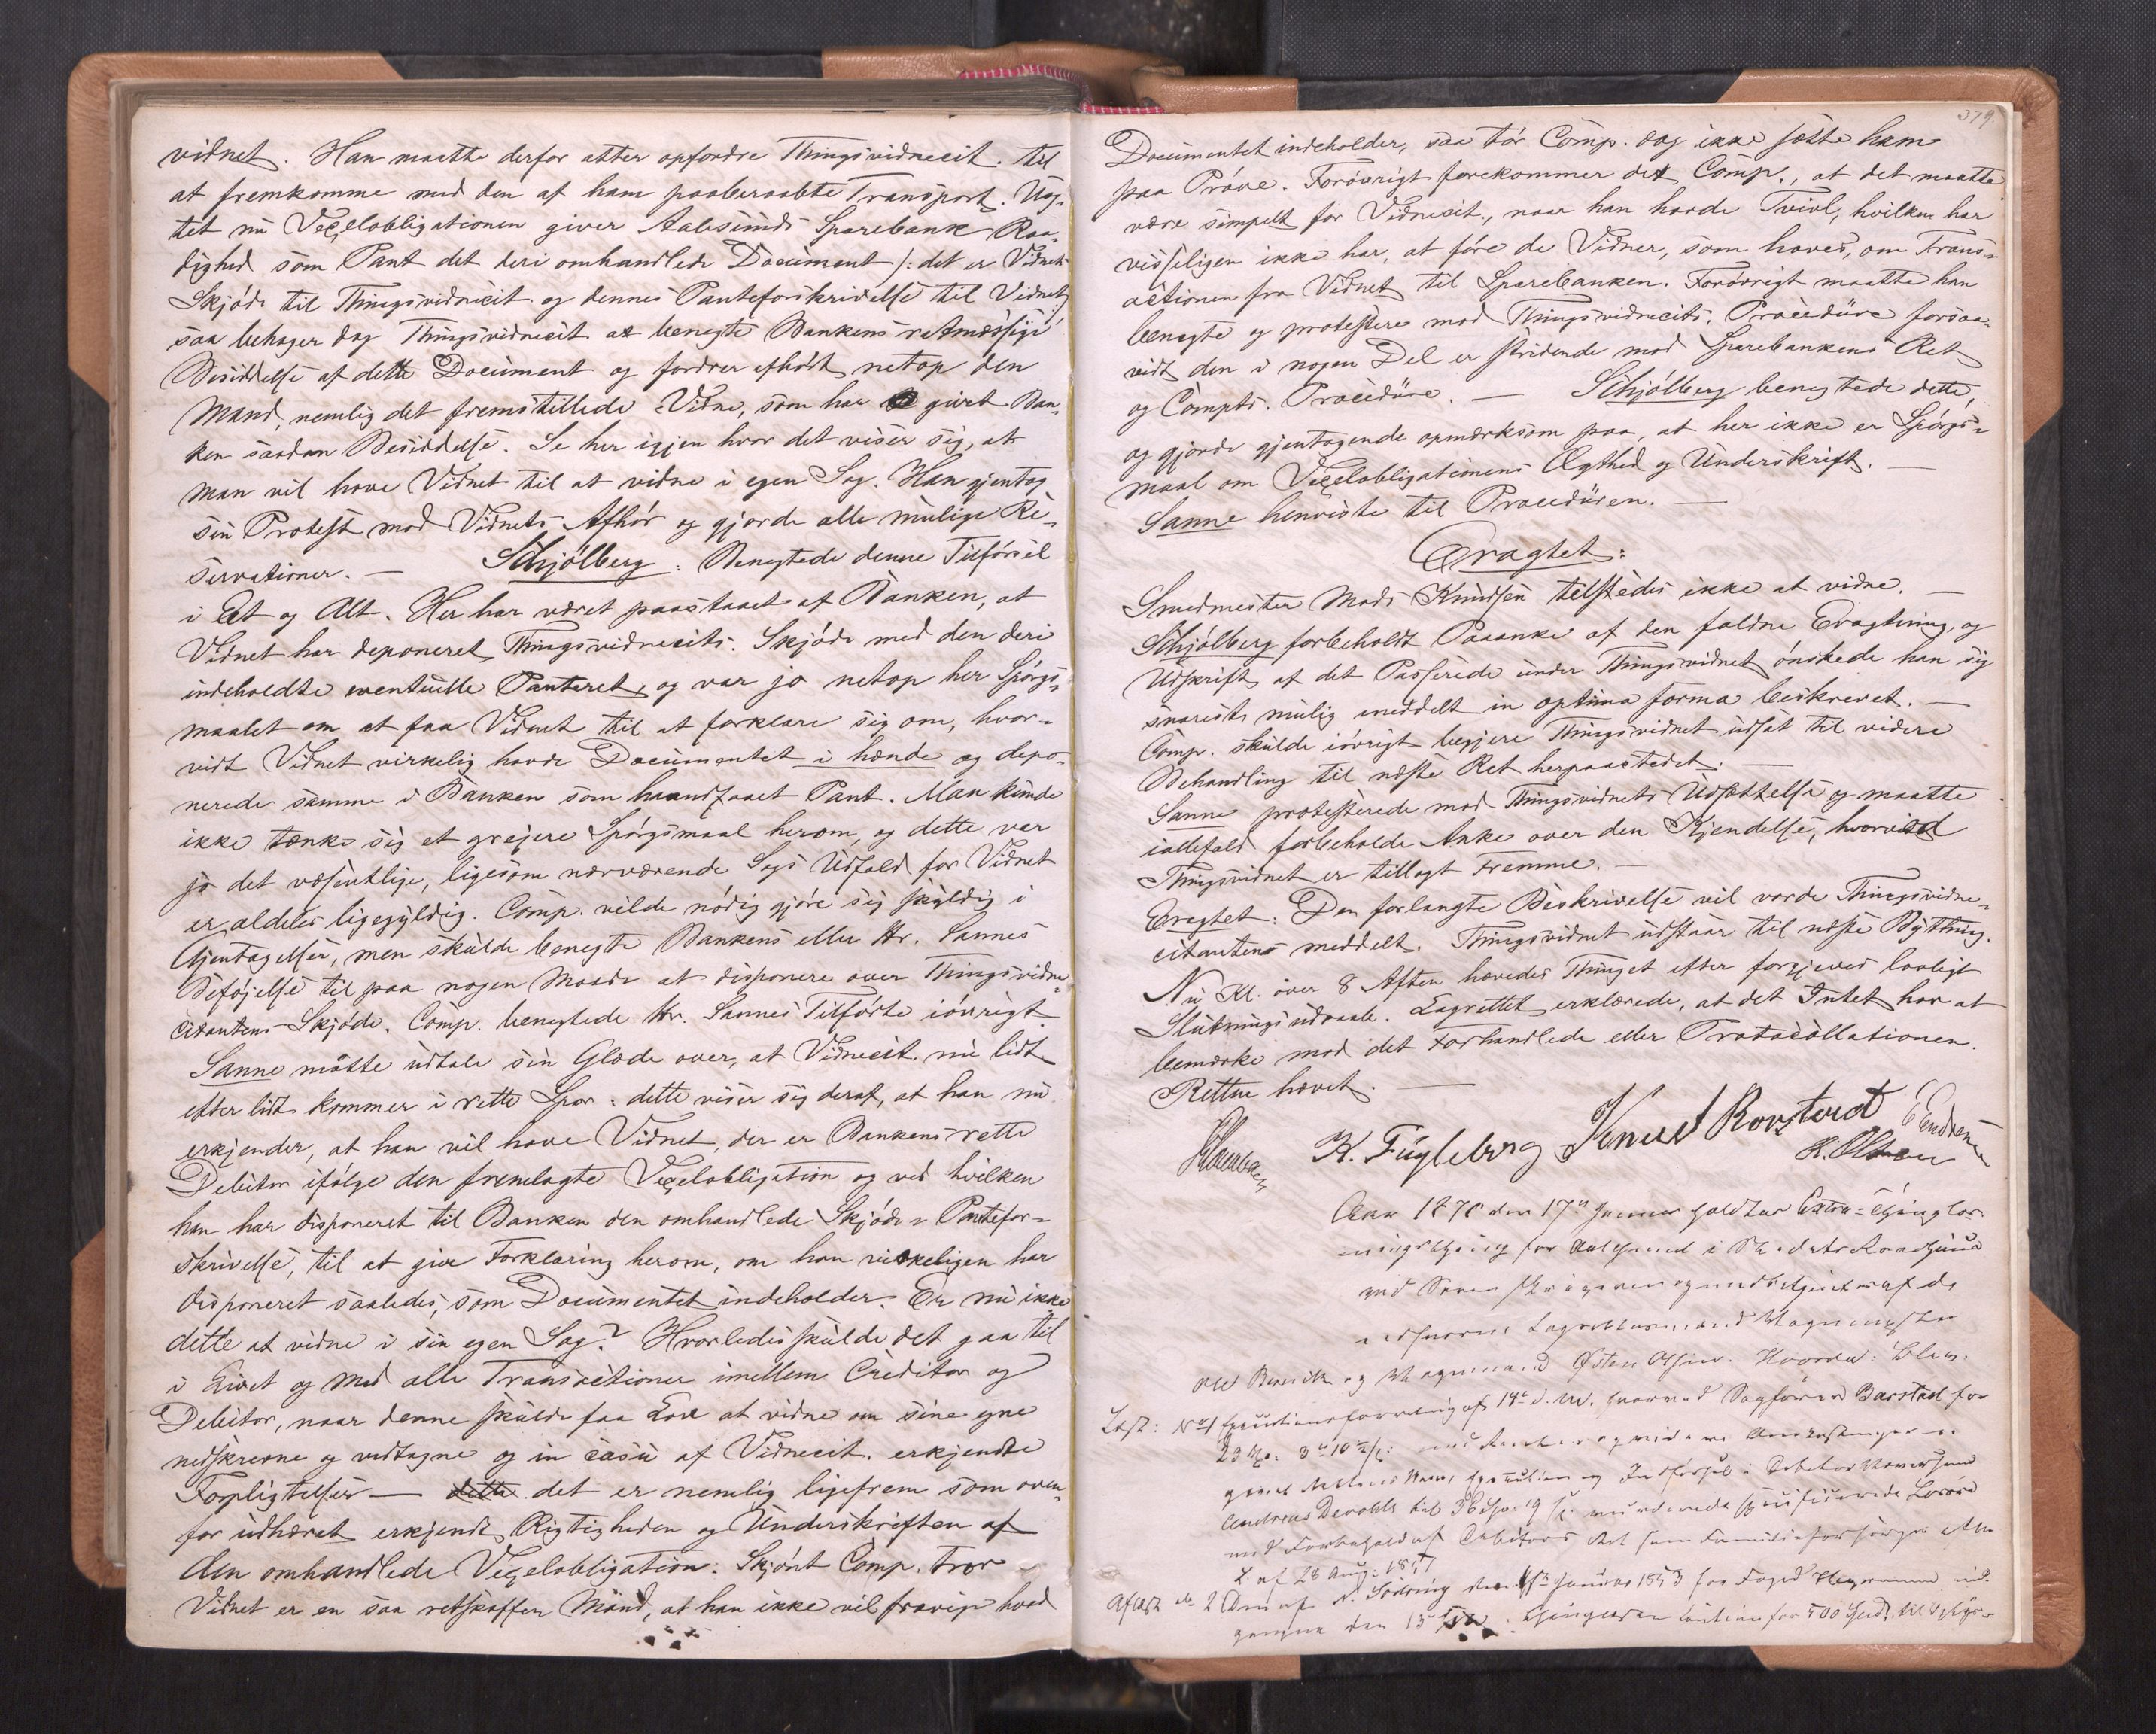 vidnet. Han maatte derfor atter opfordre Thingsvidnecit. til
at fremkomme med den af ham paaberaabte Transport. Uag-
tet nu Vexelobligationen giver Aalesunds Sparebank Raa-
dighed som Pant det deri omhandlede Document ): det er Vidnets
Skjøde til Thingsvidnecit. og dennes Panteforskrivelse til Vidnet,
saa behager dog Thingsvidnecit. at benegte Bankens retmæssige
Besiddelse af dette Document og fordrer afhørt netop den
Mand, nemlig det fremstillede Vidne, som har givet Ban-
ken saadan Besiddelse. Se her igjen hvor det viser sig, at
man vil have Vidnet til at vidne i egen Sag. Han gjentog
sin Protest mod Vidnets Afhør og gjorde alle mulige Re-
servationer. — Schjølberg: Benegtede denne Tilførsel
i Et og Alt. Her har været paastaaet af Banken, at
Vidnet har deponeret Thingsvidnecits. Skjøde med den deri
indeholdte eventuelle Panteret, og var jo netop her Spørgs-
maalet om at faa Vidnet til at forklare sig om, hvor-
vidt Vidnet virkelig havde Documentet i hænde og depo-
nerede samme i Banken som haandfaaet Pant. Man kunde
ikke tænke sig et grejere Spørgsmaal herom, og dette var
jo det væsentlige, ligesom nærværende Sags Udfald for Vidnet
er aldeles ligegyldig. Comp. vilde nødig gjøre sig skyldig i
Gjentagelser, men skulde benegte Bankens eller Hr. Sannes
Beføjelse til paa nogen Maade at disponere over Thingsvidne-
citantens Skjøde. Comp. benegtede Hr. Sannes Tilførte iøvrigt.
Sanne måtte udtale sin Glæde over, at Vidnecit. nu lidt
efter lidt kommer i rette Spor: dette viser sig deraf, at han nu
erkjender, at han vil have Vidnet, der er Bankens rette
Debitor ifølge den fremlagte Vexelobligation og ved hvilken
han har disponeret til Banken den omhandlede Skjøde & Pantefor-
skrivelse, til at give Forklaring herom, om han virkeligen har
disponeret saaledes, som Documentet indeholder. Er nu ikke
dette at vidne i sin egen Sag? Hvorledes skulde det gaa til
i Livet og med alle Transactioner imellem Creditor og
Debitor, naar denne skulde faa Lov at vidne om sine egne
nedskrevne og vedtagne og in casu af Vidnecit. erkjendte
Forpligtelser — dette det er nemlig ligefrem som oven-
for udhævet erkjendt Rigtigheden og Underskriften af
den omhandlede Vexelobligation. Skjønt Comp. tror
Vidnet er en saa retskaffen Mand, at han ikke vil fravige hvad
379
Documentet indeholder, saa tør Comp. dog ikke sætte ham
paa Prøve. Forøvrigt forekommer det Comp., at det maatte
være simpelt for Vidnecit., naar han havde Tvivl, hvilken har
visseligen ikke har, at føre de Vidner, som haves, om Trans-
actionen fra Vidnet til Sparebanken. Forøvrigt maatte han
benegte og protestere mod Thingsvidnecits. Procedure forsaa-
vidt den i nogen Del er stridende mod Sparebankens Ret
og Compts. Procedure. — Schjølberg benegtede dette,
og gjorde gjentagende opmærksom paa, at her ikke er Spørgs-
maal om Vexelobligationens Ægthed og Underskrift. —
Sanne henviste til Proceduren. —
Eragtet:
Smedmester Mads Knudsen tilstedes ikke at vidne. —
Schjølberg forbeholdt Paaanke af den faldne Eragtning, og
Udskrift af det Passerede under Thingsvidnet ønskede han sig
snarest mulig meddelt in optima forma beskrevet. —
Comp. skulde iøvrigt begjere Thingsvidnet udsat til videre
Behandling til næste Ret herpaastedet. —
Sanne protesterede mod Thingsvidnets Udsættelse og maatte
iallefald forbeholde Anke over den Kjendelse, hvorved
Thingsvidnet er tillagt Fremme. —
Eragtet: Den forlangte Beskrivelse vil vorde Thingsvidne-
citantens meddelt. Thingsvidnet udstaar til næste Bything.
Nu Kl. over 8 Aften hævedes Thinget efter forgjeves lovligt
Slutningsudraab. Lagrettet erklærede, at det Intet har at
bemærke mod det Forhandlede eller Protocollationen.
Retten hævet. —
K. Fugleberg Knud Rorstad E Endresen
H. Olsen
Aar 1878 den 17de Januar holdtes Extra-Thinglæs-
ningsthing for Aalesund i Stedets Raadhuus
ved Soren og med af de
edsvorne Lagrettesmænd Vognmester
Ole og Vognmand Østen Olsen. Hvorda: blev:
Læst: No 1 Executionsforretning af 14de d. M. hvorved Sagfører Barstad for
23 Sp. 3 10 og videre Omkostninger
Execution og Indførsel i Debitor
Andreas til 36 Sp. 19 specificerede Løsøre
med Forbehold af Debitors Ret som Familieforsørger efter
L. af 28 Aug. 18
Aflæst No 2 N. Sødring Januar 1853 for Foged ud-
gangne den 13de caution for 500 Spd. til